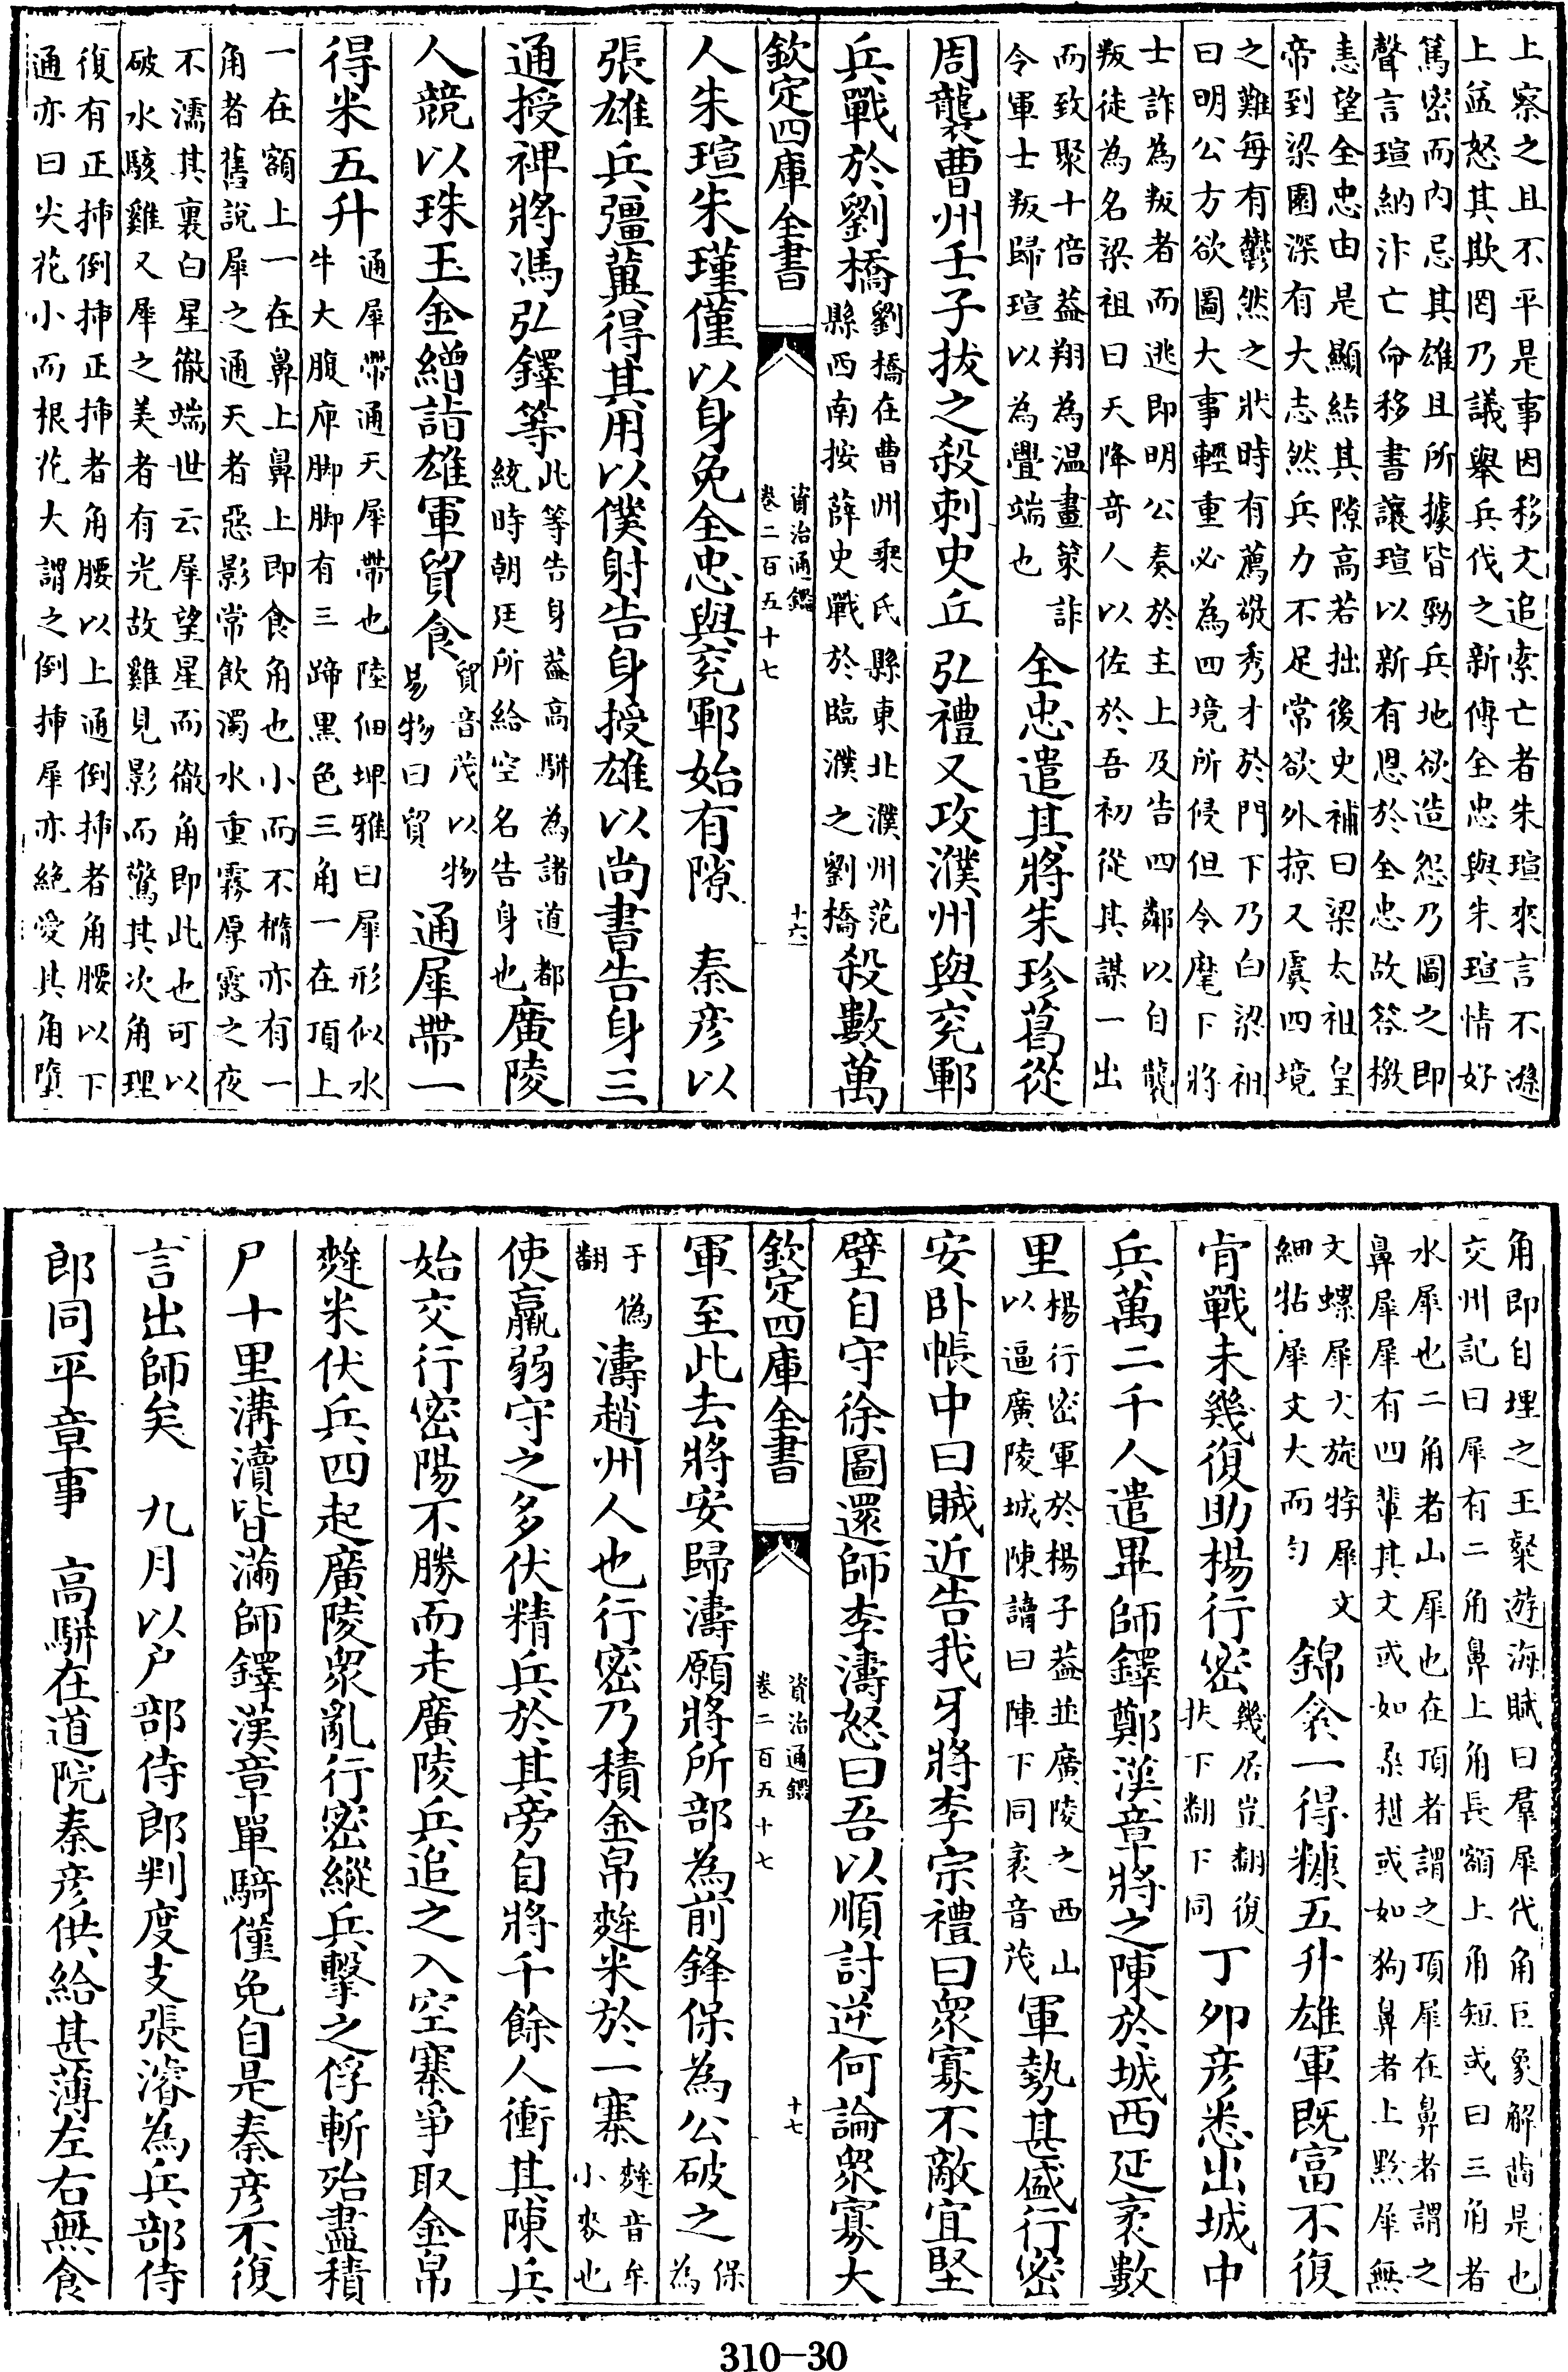 上察之且不平是事因移文追索亡者朱瑄來言不遜
上益怒其欺罔乃議舉兵伐之新傳全忠與朱瑄情好
篤密而内忌其雄且所據皆勁兵地欲造怨乃圖之即
聲言瑄納汴亡命移書讓瑄以新有恩於全忠故答檄
恚望全忠由是顯結其隙高若拙後史補曰梁太祖皇
帝到梁園深有大志然兵力不足常欲外掠又虞四境
之難每有鬱然之狀時有薦敬秀才於門下乃白梁祖
曰明公方欲圖大事輕重必為四境所侵但令麾下將
士詐為叛者而逃即明公奏於主上及告四鄰以自襲
叛徒為名梁祖曰天降奇人以佐於吾初從其謀一出
而致聚十倍益翔為温畫策詐
令軍士叛歸瑄以為釁端也
全忠遣其將朱珍葛從
周襲曹州壬子拔之殺刺史丘弘禮又攻濮州與兖鄆
兵戰於劉橋
劉橋在曹州乘氏縣東北濮州范
縣西南按薛史戰於臨濮之劉橋
殺數萬
欽定四庫全書
資治通鑑
卷二百五十七
十六
人朱瑄朱瑾僅以身免全忠與兖鄆始有隙 秦彦以
張雄兵彊冀得其用以僕射告身授雄以尚書告身三
通授裨將馮弘鐸等
此等告身益高駢為諸道都
統時朝廷所給空名告身也
廣陵
人競以珠玉金繒詣雄軍貿食
貿音茂以物
易物曰貿
通犀帶一
得米五升
通犀帶通天犀帶也陸佃埤雅曰犀形似水
牛大腹庳脚脚有三蹄黑色三角一在頂上
一在額上一在鼻上鼻上即食角也小而不橢亦有一
角者舊說犀之通天者惡影常飲濁水重霧厚露之夜
不濡其裏白星徹端世云犀望星而徹角即此也可以
破水駭雞又犀之美者有光故雞見影而驚其次角理
復有正揷倒揷正揷者角腰以上通倒揷者角腰以下
通亦曰尖花小而根花大謂之倒揷犀亦絶愛其角墮
角即自埋之王粲遊海賦曰羣犀代角巨象解齒是也
交州記曰犀有二角鼻上角長額上角短或曰三角者
水犀也二角者山犀也在頂者謂之頂犀在鼻者謂之
鼻犀犀有四輩其文或如桑椹或如狗鼻者上黔犀無
文螺犀文旋牸犀文
細牯犀文大而勻
錦衾一得糠五升雄軍既富不復
肯戰未幾復助楊行密
幾居豈翻復
扶下翻下同
丁夘彦悉出城中
兵萬二千人遣畢師鐸鄭漢章將之陳於城西延袤數
里
楊行密軍於楊子益並廣陵之西山
以逼廣陵城陳讀曰陣下同袤音茂
軍勢甚盛行密
安卧帳中曰賊近告我牙將李宗禮曰衆寡不敵宜堅
壁自守徐圖還師李濤怒曰吾以順討逆何論衆寡大
欽定四庫全書
資治通鑑
卷二百五十七
十七
軍至此去將安歸濤願將所部為前鋒保為公破之
保為
于偽
翻
濤趙州人也行密乃積金帛麰米於一寨
麰音牟
小麥也
使羸弱守之多伏精兵於其旁自將千餘人衝其陳兵
始交行密陽不勝而走廣陵兵追之入空寨爭取金帛
麰米伏兵四起廣陵衆亂行密縱兵擊之俘斬殆盡積
尸十里溝瀆皆滿師鐸漢章單騎僅免自是秦彦不復
言出師矣 九月以户部侍郎判度支張濬為兵部侍
郎同平章事 高駢在道院秦彦供給甚薄左右無食
310-30